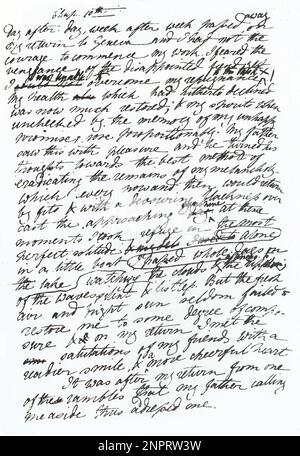 Chap. 10th
Day after day, week after week passed away
on my return to Geneva and I had not the
courage to commence my work. I feared the
vengeance of the disappointed fiend yet
I was unable to overcome my repugnance to the task
My health which had hitherto declined
was now much restored; & my spirits when
unchecked by the memory of my unhappy
promise, rose proportionably. My father
saw this with pleasure and he turned his
thoughts towards the best method of
eradicating the remains of my melancholy
which every now and then would return
by fits & with a devouring blackness over
cast the approaching sunshine. At these
moments I took refuge in the most
perfect solitude. I passed whole days
alone on the lake in a little boat
watching the clouds &
of the waves silent & listless. But the fresh
air and bright sun seldom failed to
restore me to some degree of compo-
sure & on my return I met the
salutations of my friends with a
readier smile & a more cheerful heart
It was after my return from one
of these rambles that my father calling
me aside thus adressed me.
alamy
Image ID: 2NPRW3W
www.alamy.com